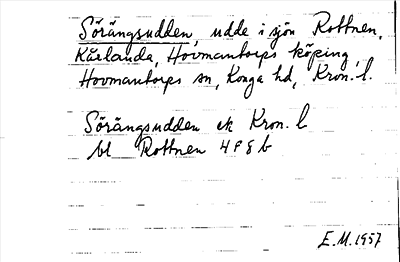 Sörängsudden, udde i sjön Rottnen,
Kårlanda, Hovmantorps köping,
Hovmantorps sn, Konga hd, Kron. l.
Sörängsudden ek Kron. l
bl Rottnen 4F8b
E.M. 1957